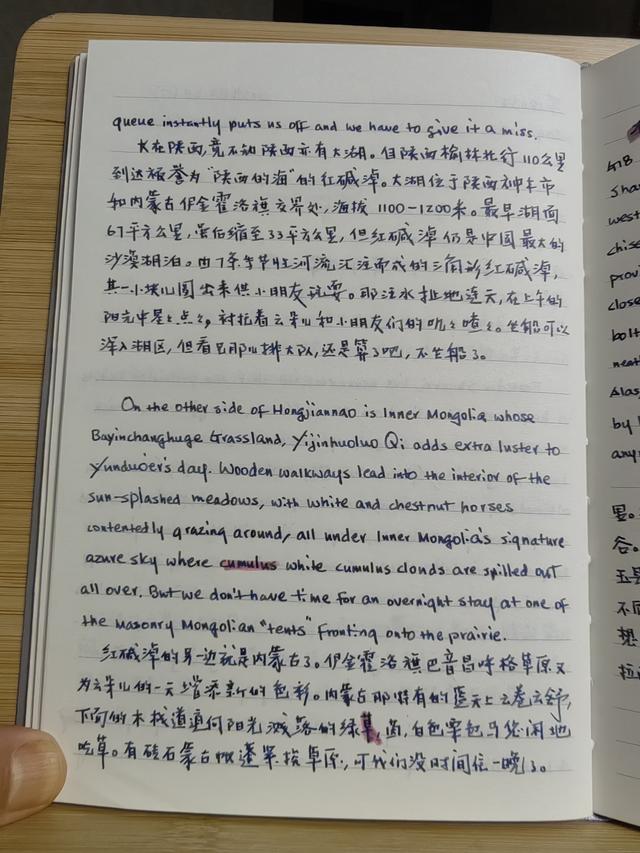 queue instantly puts us off and we have to give it a miss.
长在陕西,竟不知陕西亦有大湖。但陕西榆林北行110公里
到达被誉为“陕西的海”的红碱淖。大湖位于陕西神木市
和内蒙古伊金霍洛旗交界处,海拔1100-1200米。最早湖面
67平方公里,虽后缩至33平方公里,但红碱淖仍是中国最大的
沙漠湖泊。由7条季节性河流汇注而成的三角形红碱淖,
其一小块儿围出来供小朋友玩耍。那注水扯地连天,在上午的
阳光中星星点点,衬托着云朵儿和小朋友们的叽叽喳喳。坐船可以
深入湖区,但看见那儿排大队,还是算了吧,不坐船了。
On the other side of Hongjiannao is Inner Mongolia whose
Bayinchanghuge Grassland, Yijinhuoluo Qi adds extra luster to
Yunduo'er's day. Wooden walkways lead into the interior of the
sun-splashed meadows, with white and chestnut horses
contentedly grazing around, all under Inner Mongolia's signature
azure sky where cumulus white cumulus clouds are spilled out
all over. But we don't have time for an overnight stay at one of
the masonry Mongolian "tents" fronting onto the prairie.
红碱淖的另一边就是内蒙古了。伊金霍洛旗巴音昌呼格草原又
为云朵儿的一天增添新的色彩。内蒙古那特有的蓝天上云卷云舒,
下面的木栈道通向阳光溅落的绿草,面,白色枣色马悠闲地
吃草。有砖石蒙古帐篷紧挨草原,可我们没时间住一晚了。